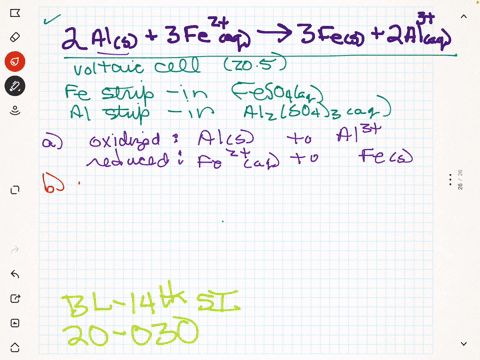 2Al(s) + 3Fe²⁺(aq) → 3Fe(s) + 2Al³⁺(aq)
voltaic cell (20.5)
Fe strip - in FeSO₄(aq)
Al strip - in Al₂(SO₄)₃(aq)
a) oxidized : Al(s) to Al³⁺
reduced : Fe²⁺(aq) to Fe(s)
b)
BL-14th SI
20-030